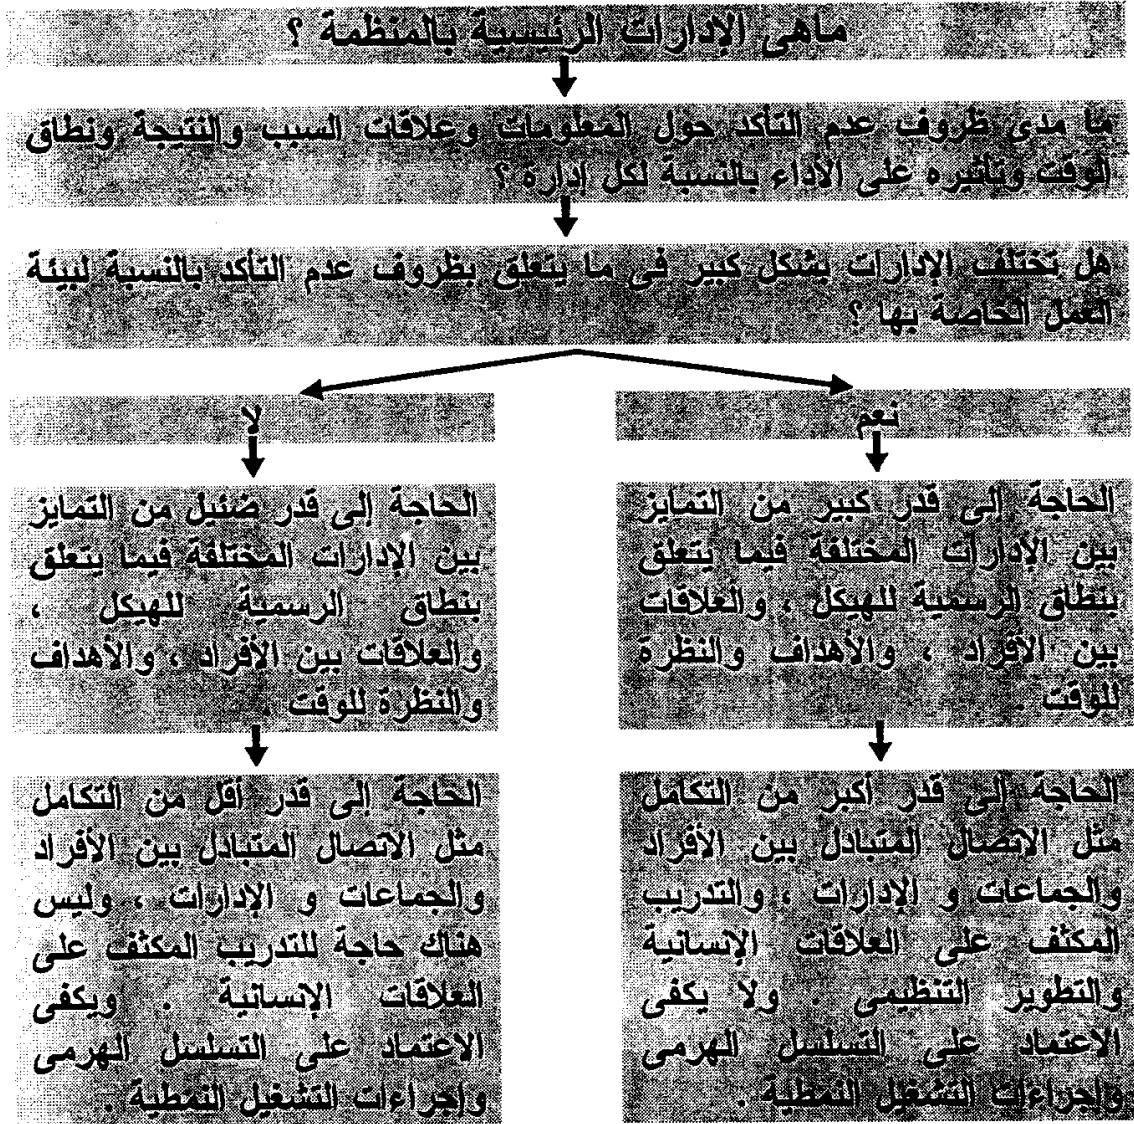 ماهى الإدارات الرئيسية بالمنظمة ؟
ما مدى ظروف عدم التأكد حول المعلومات وعلاقات السبب والنتيجة ونطاق
الوقت وتأثيره على الأداء بالنسبة لكل إدارة ؟
هل تختلف الإدارات بشكل كبير فى ما يتعلق بظروف عدم التأكد بالنسبة لبيئة
العمل الخاصة بها ؟
نعم
الحاجة إلى قدر كبير من التمايز
بين الإدارات المختلفة فيما يتعلق
بنطاق الرسمية للهيكل ، والعلاقات
بين الأفراد ، والأهداف والنظرة
للوقت .
الحاجة إلى قدر أكبر من التكامل
مثل الاتصال المتبادل بين الأفراد
والجماعات و الإدارات ، والتدريب
المكثف على العلاقات الإنسانية
والتطوير التنظيمى . ولا يكفى
الاعتماد على التسلسل الهرمى
وإجراءات التشغيل النمطية .
لا
الحاجة إلى قدر ضئيل من التمايز
بين الإدارات المختلفة فيما يتعلق
بنطاق الرسمية للهيكل ،
والعلاقات بين الأفراد ، والأهداف
والنظرة للوقت .
الحاجة إلى قدر أقل من التكامل
مثل الاتصال المتبادل بين الأفراد
والجماعات و الإدارات ، وليس
هناك حاجة للتدريب المكثف على
العلاقات الإنسانية . ويكفى
الاعتماد على التسلسل الهرمى
وإجراءات التشغيل النمطية .